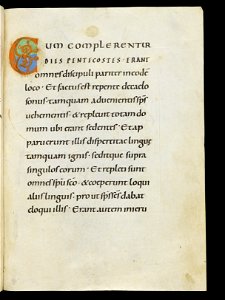 CUM COMPLERENTUR
DIES PENTECOSTES · ERANT
omnes discipuli pariter in eodē
loco · Et factus est repente de caelo
sonus · tamquam advenientis sp̄s
vehementis · & replevit totam do
mum ubi erant sedentes · Et ap
paruerunt illis dispertitae linguę
tamquam ignis · seditque supra
singulos eorum · Et repleti sunt
omnes sp̄u sc̄o · & coeperunt loqui
aliis linguis · prout sp̄s sc̄s dabat
eloqui illis · Erant autem in